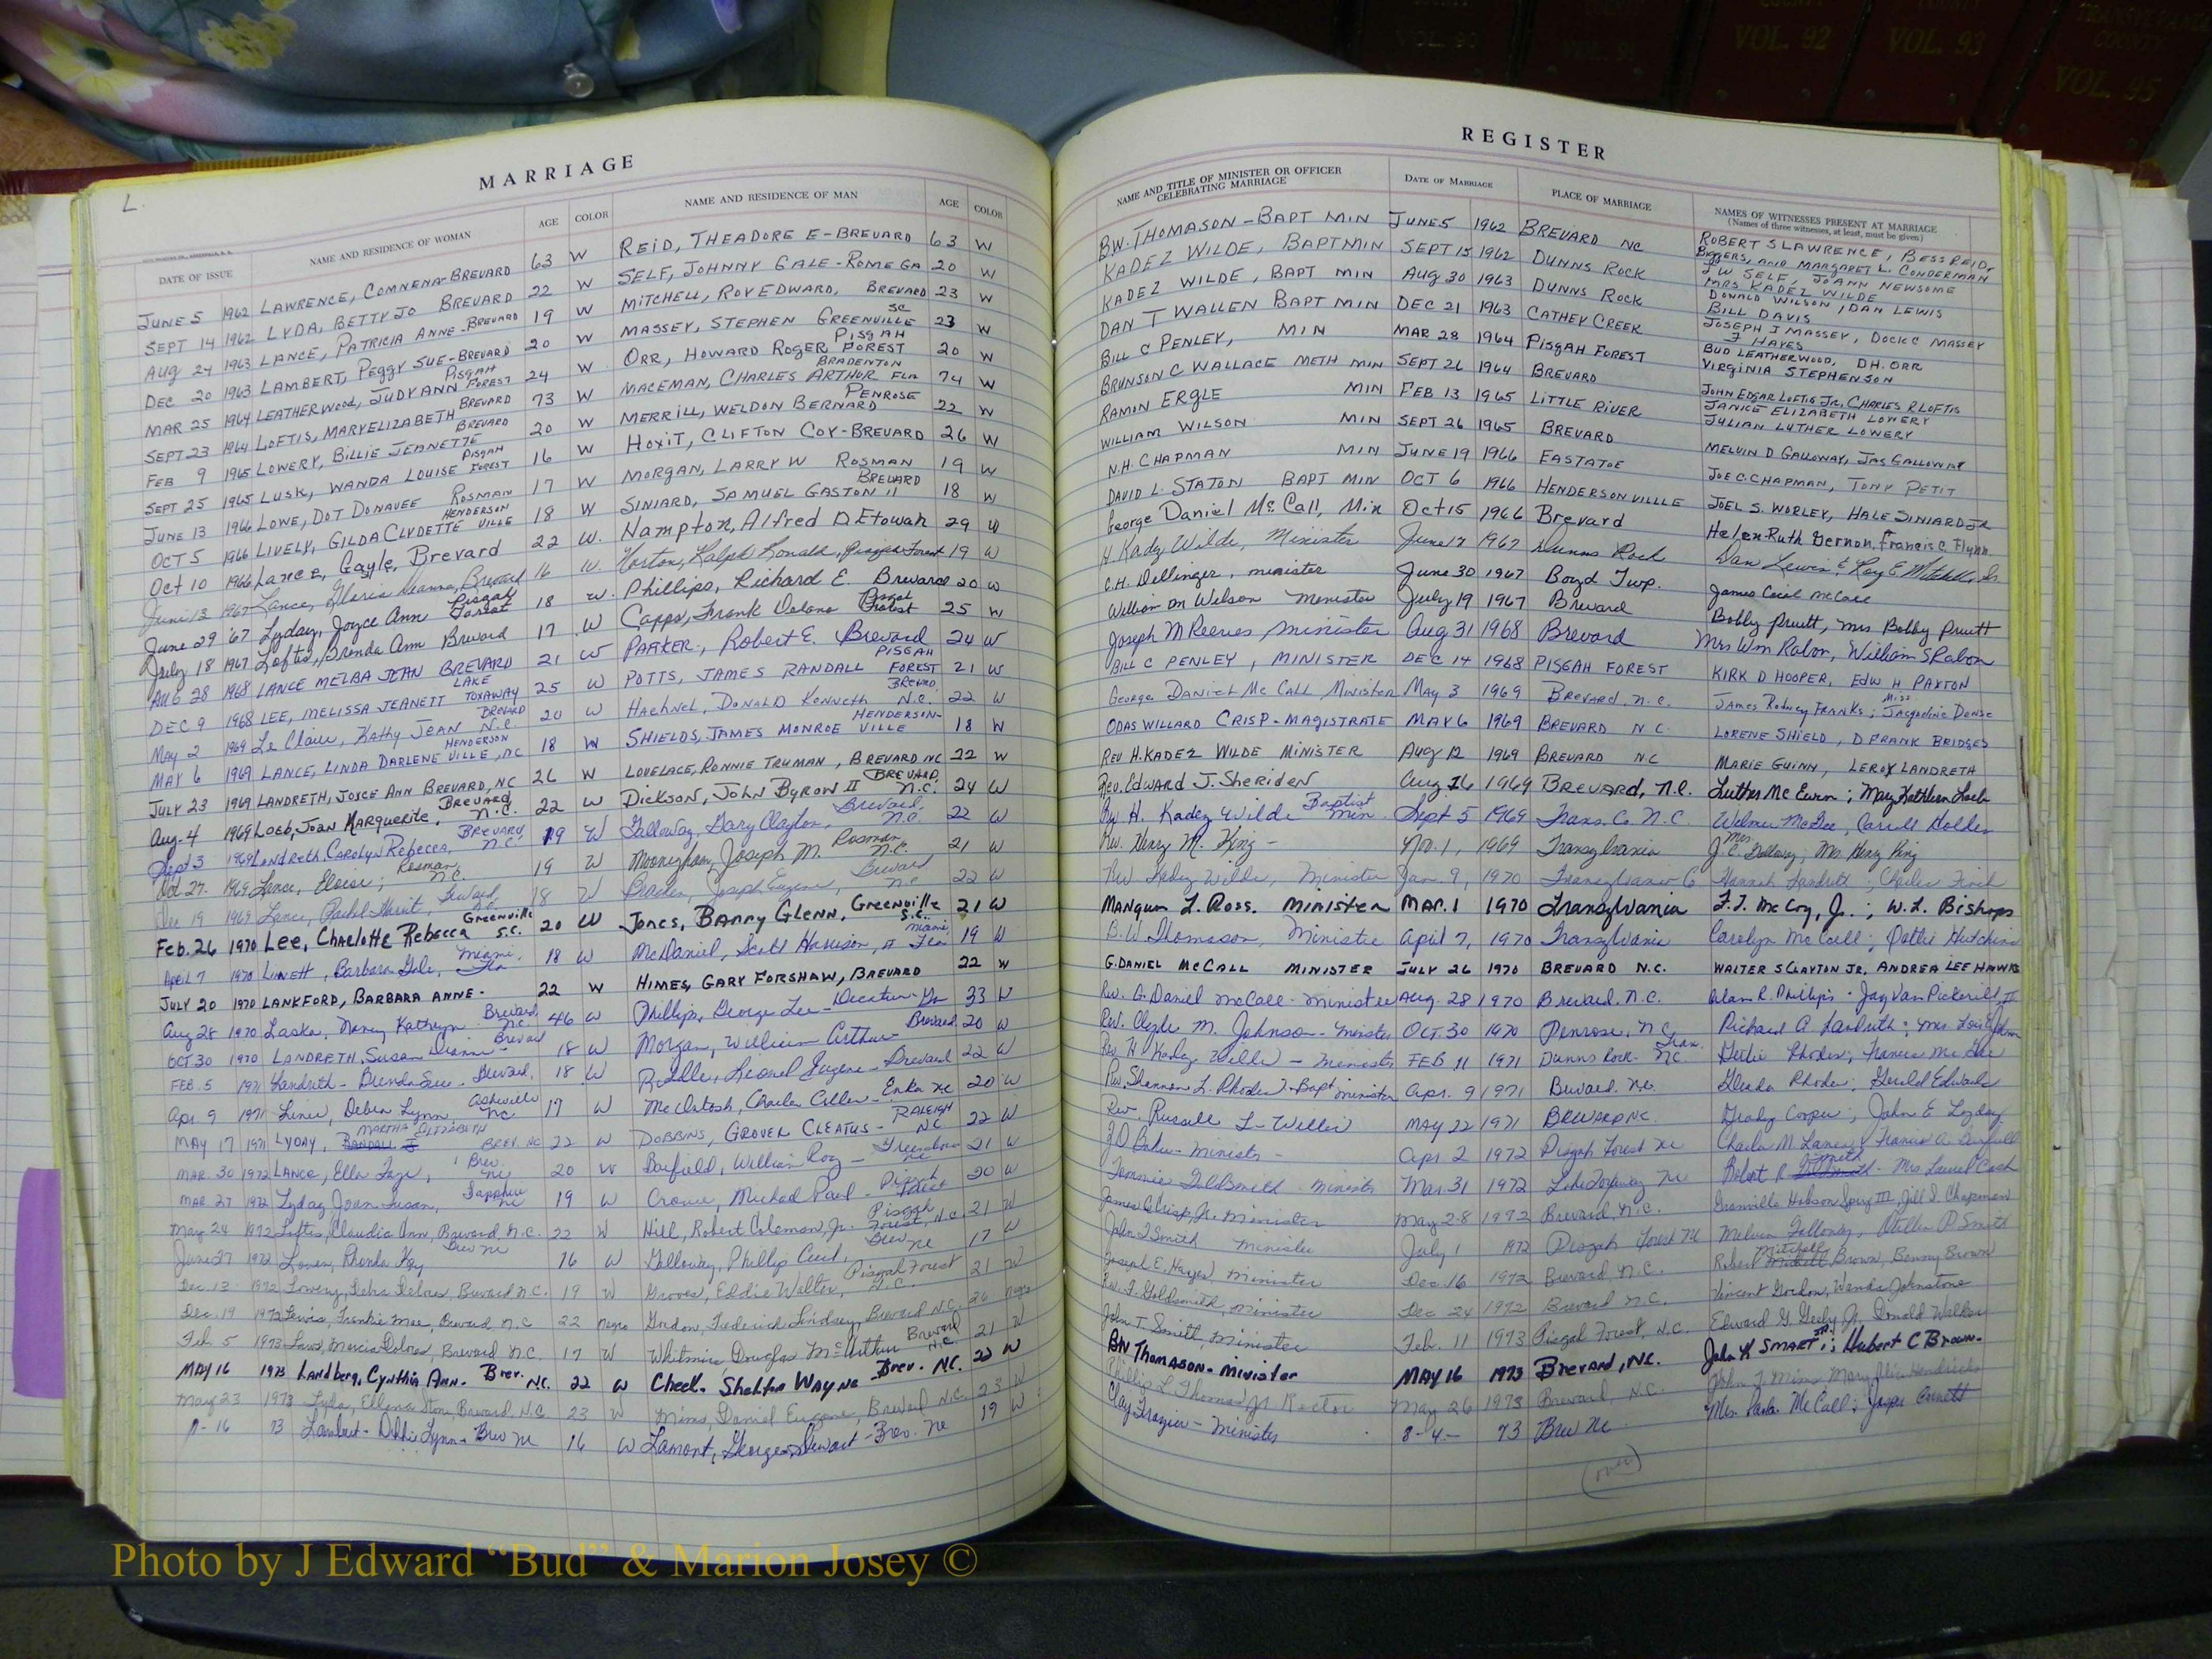 COUNTY VOL. 90
COUNTY VOL. 91
COUNTY VOL. 92
COUNTY VOL. 93
TRANSYLVANIA COUNTY VOL. 95
L.
MARRIAGE
DATE OF ISSUE NAME AND RESIDENCE OF WOMAN AGE COLOR NAME AND RESIDENCE OF MAN AGE COLOR
JUNE 5 1962 LAWRENCE, COMNENA-BREVARD 63 W REID, THEADORE E-BREVARD 63 W
SEPT 14 1962 LYDA, BETTY JO BREVARD 22 W SELF, JOHNNY GALE-ROME GA 20 W
AUG 24 1963 LANCE, PATRICIA ANNE-BREVARD 19 W MITCHELL, ROY EDWARD, BREVARD 23 W
DEC 20 1963 LAMBERT, PEGGY SUE-BREVARD 20 W MASSEY, STEPHEN GREENVILLE SC 23 W
MAR 25 1964 LEATHERWOOD, JUDY ANN PISGAH FOREST 24 W ORR, HOWARD ROGER PISGAH FOREST 20 W
SEPT 23 1964 LOFTIS, MARY ELIZABETH BREVARD 73 W MACEMAN, CHARLES ARTHUR BRADENTON FLA 74 W
FEB 9 1965 LOWERY, BILLIE JEANETTE BREVARD 20 W MERRILL, WELDON BERNARD PENROSE 22 W
SEPT 25 1965 LUSK, WANDA LOUISE PISGAH FOREST 16 W HOXIT, CLIFTON COY-BREVARD 26 W
JUNE 13 1966 LOWE, DOT DONAVEE ROSMAN 17 W MORGAN, LARRY W ROSMAN 19 W
OCT 5 1966 LIVELY, GILDA CLYDETTE HENDERSON VILLE 18 W SINIARD, SAMUEL GASTON II BREVARD 18 W
Oct 10 1966 Lance, Gayle, Brevard 22 W. Hampton, Alfred D. Etowah 29 W
June 12 1967 Lance, Gloria Deanna, Brevard 16 W. Horton, Ralph Ronald, Pisgah Forest 19 W
June 29 '67 Lyday, Joyce Ann Pisgah Forest 18 W. Phillips, Richard E. Brevard 20 W
July 18 1967 Loftis, Brenda Ann Brevard 17 W Capps, Frank Delano Pisgah Forest 25 W
AUG 28 1968 LANCE MELBA JEAN BREVARD 21 W PARKER, Robert E. Brevard 24 W
DEC 9 1968 LEE, MELISSA JEANETT LAKE TOXAWAY 25 W POTTS, JAMES RANDALL PISGAH FOREST 21 W
May 2 1969 Le Claire, Kathy JEAN BREVARD N.C. 20 W Haehnel, DONALD Kenneth BREVARD N.C. 22 W
MAY 6 1969 LANCE, LINDA DARLENE HENDERSON VILLE, NC 18 W SHIELDS, JAMES MONROE HENDERSON-VILLE 18 W
JULY 23 1969 LANDRETH, JOYCE ANN BREVARD, NC 26 W LOVELACE, RONNIE TRUMAN, BREVARD NC 22 W
Aug. 4 1969 LOEB, JOAN MARQUERITE, BREVARD N.C. 22 W DICKSON, JOHN BYROW II BREVARD, N.C. 24 W
Sept 3 1969 Landreth, Carolyn Rebecca, BREVARD, N.C. 19 W Galloway, Gary Clayton, Brevard, N.C. 22 W
Oct 27. 1969 Lance, Eloise; Rosman, N.C. 19 W Joseph M. Rosman N.C. 21 W
Dec 19 1969 Lance, Brevard N.C. 18 W Joseph Eugene, Brevard N.C. 22 W
Feb. 26 1970 Lee, Charlotte Rebecca Greenville S.C. 20 W Jones, Barry Glenn, Greenville S.C. 21 W
April 7 1970 Barbara Gale, Miami, Fla 18 W McDaniel, Scott Harrison, Miami, Fla 19 W
JULY 20 1970 LANKFORD, BARBARA ANNE - 22 W HIMES, GARY FORSHAW, BREVARD 22 W
Aug 28 1970 Laska, Nancy Kathryn Brevard, N.C. 46 W Phillips, George Lee - Decatur Ga 33 W
OCT 30 1970 LANDRETH, Susan Brevard 18 W Morgan, William Arthur Brevard 20 W
FEB. 5 1971 Landreth - Brenda Sue - Brevard, 18 W Leonel Eugene - Brevard 22 W
Apr 9 1971 Debra Lynn, Asheville NC 17 W McIntosh, Charles Enka NC 20 W
MAY 17 1971 LYDAY, MARTHA ELIZABETH BREV. NC 22 W DOBBINS, GROVER CLEATUS - RALEIGH NC 22 W
MAR. 30 1972 LANCE, Ella Faye, Brev. NC 20 W Barfield, William Roy - Greensboro NC 21 W
MAR. 27 1972 Lyday, Joan Susan, Sapphire NC 19 W Crowe, Michael Paul - Pisgah Forest 20 W
May 24 1972 Loftis, Claudia Ann, Brevard, N.C. 22 W Hill, Robert Coleman, Jr. Pisgah Forest, N.C. 21 W
June 27 1972 Rhonda Kay Brev NC 16 W Galloway, Phillip Cecil, Brev NC 17 W
Dec. 13 1972 Lowery, Debra Delores, Brevard N.C. 19 W Groves, Eddie Walter, Pisgah Forest N.C. 21 W
Dec. 19 1972 Lewis, Frankie Mae, Brevard, N.C 22 Negro Gordon, Frederick Lindsey, Brevard N.C. 26 Negro
Feb 5 1973 Laws, Marcia Delores, Brevard N.C. 17 W Whitmire, Douglas McArthur Brevard N.C. 21 W
MAY 16 1973 Landberg, Cynthia Ann - Brev. NC. 22 W Cheek - Shelton Wayne - Brev. NC. 22 W
May 23 1973 Lyda, Ellena Stone, Brevard, N.C. 23 W Mims, Daniel Eugene, Brevard N.C. 23 W
16 73 Lambert - Debbie Lynn - Brev NC 16 W Lamont, George Stewart - Brev. NC 19 W
REGISTER
NAME AND TITLE OF MINISTER OR OFFICER CELEBRATING MARRIAGE DATE OF MARRIAGE PLACE OF MARRIAGE NAMES OF WITNESSES PRESENT AT MARRIAGE (Names of three witnesses, at least, must be given)
B.W. THOMASON - BAPT MIN JUNE 5 1962 BREVARD NC ROBERT S LAWRENCE, BESS REID,
KADEZ WILDE, BAPT MIN SEPT 15 1962 DUNNS ROCK BIGGERS, AND MARGARET L. CONDERMAN
J W SELF, JOANN NEWSOME
KADEZ WILDE, BAPT MIN AUG 30 1963 DUNNS ROCK MRS KADEZ WILDE
DONALD WILSON, DAN LEWIS
DAN T WALLEN BAPT MIN DEC 21 1963 CATHEY CREEK BILL DAVIS
JOSEPH J MASSEY, DOCK C MASSEY
BILL C PENLEY, MIN MAR 28 1964 PISGAH FOREST J HAYES
BUD LEATHERWOOD, D.H. ORR
BRUNSON C WALLACE METH MIN SEPT 26 1964 BREVARD VIRGINIA STEPHENSON
RAMON ERGLE MIN FEB 13 1965 LITTLE RIVER JOHN EDGAR LOFTIS JR, CHARLES R LOFTIS
JANICE ELIZABETH LOWERY
WILLIAM WILSON MIN SEPT 26 1965 BREVARD JULIAN LUTHER LOWERY
N.H. CHAPMAN MIN JUNE 19 1966 EASTATOE MELVIN D GALLOWAY, JAS GALLOWAY
DAVID L. STATON BAPT MIN OCT 6 1966 HENDERSONVILLLE JOE C. CHAPMAN, TONY PETIT
George Daniel Mc Call, Min Oct 15 1966 Brevard JOEL S. WORLEY, HALE SINIARD JR
H. Kadez Wilde, Minister June 17 1967 Dunns Rock Helen Ruth Gernon, Francis C. Flynn
C.H. Dellinger, minister June 30 1967 Boyd Twp. Dan Lewis & Roy E. Mitchell, Sr.
William M Wilson Minister July 19 1967 Brevard James Cecil McCall
Joseph M Reeves Minister Aug 31 1968 Brevard Bobby Pruett, Mrs Bobby Pruett
BILL C PENLEY, MINISTER DEC 14 1968 PISGAH FOREST Mrs Wm Rabon, William S Rabon
George Daniel McCall Minister May 3 1969 Brevard, N.C. KIRK D HOOPER, EDW H PAXTON
ODAS WILLARD CRISP - MAGISTRATE MAY 6 1969 BREVARD N C. JAMES Rodney FRANKS; Miss Jacqueline Dense
REV H. KADEZ WILDE MINISTER AUG 12 1969 BREVARD NC LORENE SHIELD, D FRANK BRIDGES
Rev. Edward J. Sheridan Aug 16 1969 BREVARD, N.C. MARIE GUINN, LEROY LANDRETH
Rev H. Kadez Wilde Baptist Min. Sept 5 1969 Trans. Co. N.C. Luther McEwen; Mary Kathleen Loeb
Rev. Henry M. King - Nov. 1, 1969 Transylvania McGee, Carroll Holden
Rev Kadez Wilde, Minister Jan. 9, 1970 Transylvania Co Mrs. J.C. Galloway; Mrs. Henry King
Mangum L. Ross. Minister Mar. 1 1970 Transylvania Hannah Landreth; Charles
B. W. Thomason, Minister April 7, 1970 Transylvania F.J. McCoy, Jr.; W.L. Bishop
G. DANIEL MCCALL MINISTER JULY 26 1970 BREVARD N.C. Carolyn McCall; Dottie Hutchins
Rev. G. Daniel McCall - minister Aug. 28 1970 Brevard. N.C. WALTER S CLAYTON JR, ANDREA LEE HAWKS
Rev. Clyde M. Johnson - minister OCT. 30 1970 Penrose, N.C. Alan R. Phillips - Jay Van Pickerill II
Rev H Kadez Wilde - minister FEB 11 1971 DUNNS Rock - Tran. NC. Richard A. Landreth; Mrs.
Rev. Shannon L. Rhodes Jr - Bapt minister Apr. 9 1971 Brevard. N.C. Rhodes; Frances McGee
Rev Russell L. Willis MAY 22 1971 BREVARD NC Glenda Rhodes; Gerald Edwards
minister - Apr 2 1972 Pisgah Forest NC Grady Cooper; John E Lyday
Tommie Minister Mar. 31 1972 Lake Toxaway NC Charles M. Lance; Francis A. Barfield
James C. Crisp, Jr. Minister May 28 1972 Brevard, N.C. Robert R Smith - Mrs Laurel Cash
John T Smith Minister July 1 1972 Pisgah Forest NC Granville Hobson III, Jill S. Chapman
Joseph E. Hayes Minister Dec. 16 1972 Brevard N.C. Melvin Galloway, P. Smith
Rev. F. Goldsmith, Minister Dec 24 1972 Brevard N.C. Robert Mitchell Brown, Benny Brown
John T. Smith, Minister Feb. 11 1973 Pisgah Forest, N.C. Vincent Gordon, Wanda Johnstone
BW Thomason - Minister MAY 16 1973 Brevard, NC. Edward G. Jr., Donald Walker
Phillip L. Thomas Jr. Rector May 26 1973 Brevard, N.C. John K SMART JR.; Hubert C Brown
Clay Frazier - Minister 8-4- 73 Brev NC John J. Mims, Mary Alice Hendricks
Mrs. McCall;
(over)
Photo by J Edward “Bud” & Marion Josey ©